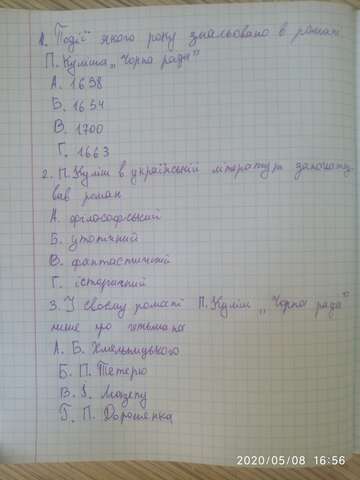 1. Події якого року змальовано в романі
П. Куліша „Чорна рада"
А. 1698
Б. 1654
В. 1700
Г. 1663
2. П. Куліш в українській літературі започату-
вав роман
А. філософський
Б. утопічний
В. фантастичний
Г. історичний
3. У своєму романі П. Куліш „Чорна рада"
пише про гетьмана
А. Б. Хмельницького
Б. П. Тетерю
В. І. Мазепу
Г. П. Дорошенка
2020/05/08 16:56